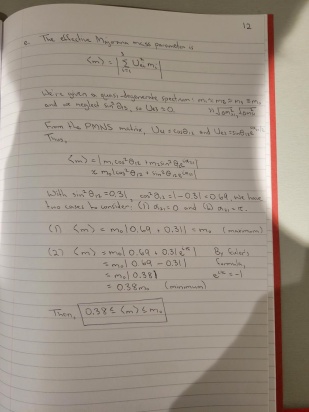 12
c. The effective Majorana mass parameter is
⟨m⟩ = |Σ_{i=1}^{3} U_{ei}^2 m_i|
We're given a quasi-degenerate spectrum: m_1 ≈ m_2 ≈ m_3 ≡ m_0
and we neglect sin²θ_13, so U_{e3} ≈ 0.
From the PMNS matrix, U_{e1} = cosθ_12 and U_{e2} = sinθ_12
Thus,
⟨m⟩ = |m_1 cos²θ_12 + m_2 sin²θ_12 e^{iα_21}|
≈ m_0 |cos²θ_12 + sin²θ_12 e^{iα_21}|
With sin²θ_12 = 0.31, cos²θ_12 = 1 - 0.31 = 0.69, we have
two cases to consider: (1) α_21 = 0 and (2) α_21 = π.
(1) ⟨m⟩ = m_0 | 0.69 + 0.31 | = m_0 (maximum)
(2) ⟨m⟩ = m_0 | 0.69 + 0.31 e^{iπ} | By Euler's
= m_0 | 0.69 - 0.31 | formula,
= m_0 | 0.38 | e^{iπ} = -1
= 0.38 m_0 (minimum)
Then, 0.38 ≤ ⟨m⟩ ≤ m_0